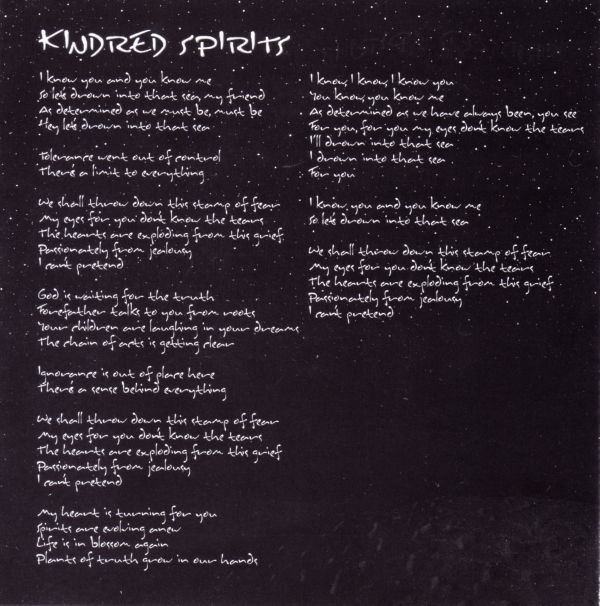 KINDRED SPIRITS
I know you and you know me
So let's drown into that sea, my friend
As determined as we must be, must be
Hey let's drown into that sea
Tolerance went out of control
There's a limit to everything
We shall throw down this stamp of fear
My eyes for you don't know the tears
The hearts are exploding from this grief
Passionately from jealousy
I can't pretend
God is waiting for the truth
Forefather talks to you from roots
Your children are laughing in your dreams
The chain of arts is getting clear
Ignorance is out of place here
There's a sense behind everything
We shall throw down this stamp of fear
My eyes for you don't know the tears
The hearts are exploding from this grief
Passionately from jealousy
I can't pretend
My heart is turning for you
Spirits are evolving anew
Life is in blossom again
Plants of truth grow in our hands
I know, I know, I know you
You know, you know me
As determined as we have always been, you see
For you, for you my eyes don't know the tears
I'll drown into that sea
I drown into that sea
For you
I know, you and you know me
So let's drown into that sea
We shall throw down this stamp of fear
My eyes for you don't know the tears
The hearts are exploding from this grief
Passionately from jealousy
I can't pretend